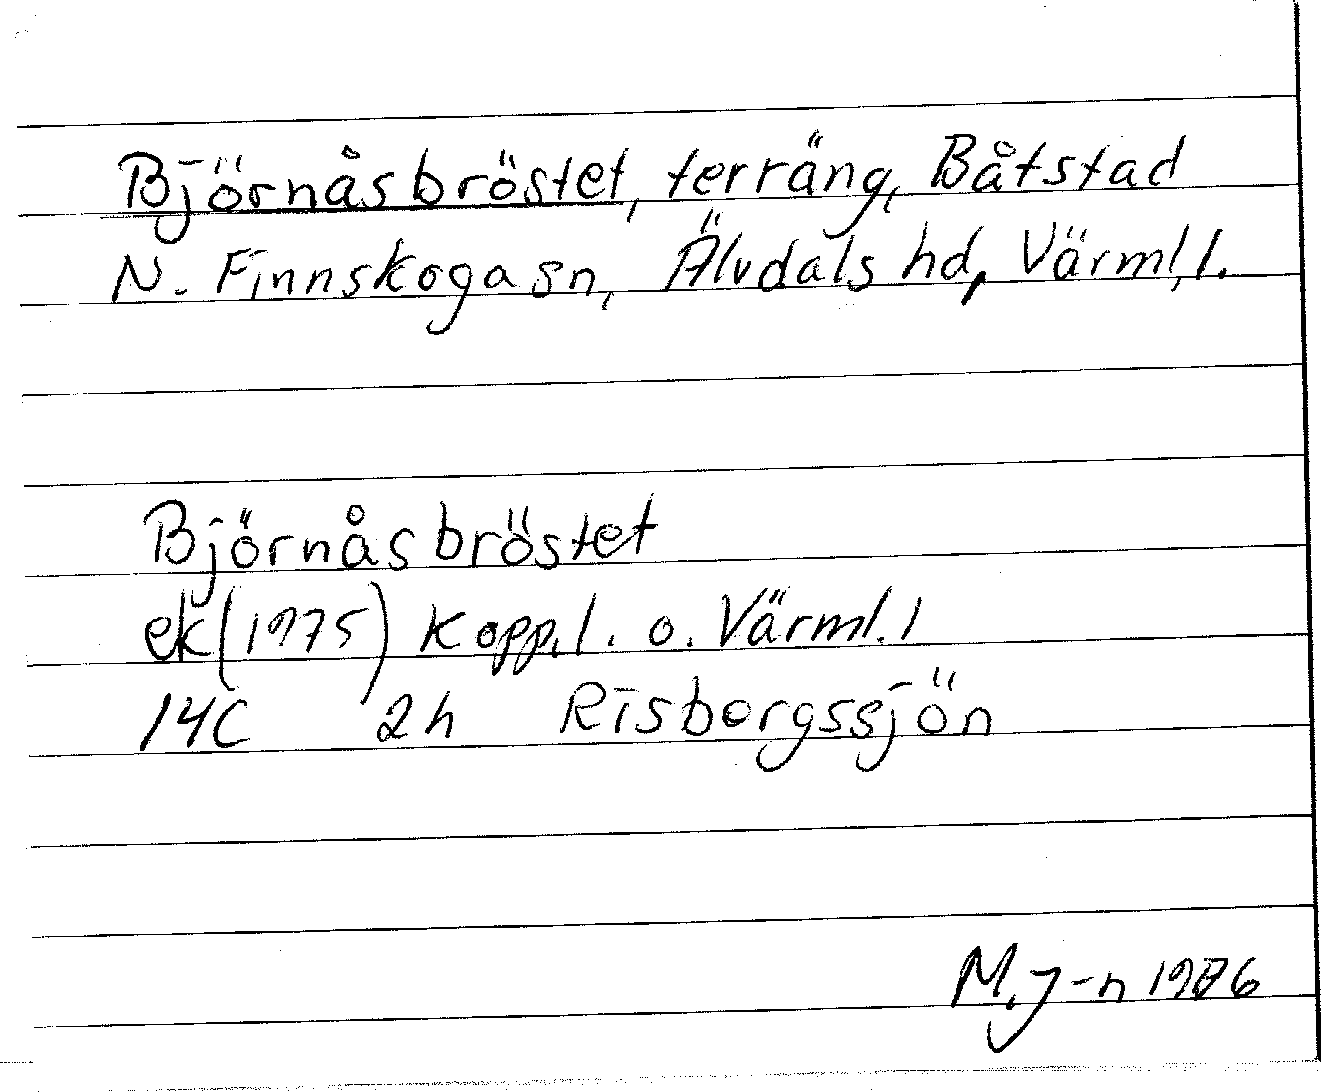 Björnåsbröstet, terräng, Båtstad
N. Finnskoga sn, Älvdals hd, Värml, l.
Björnåsbröstet
ek (1975) Kopp.l. o. Värml. l
14C 2h Risbergssjön
M. J-n 1986